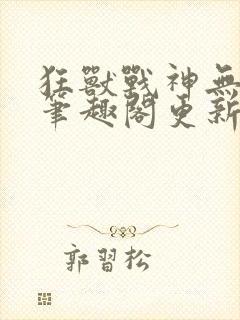 狂獸戰神無
筆趣閣更新
郭習松